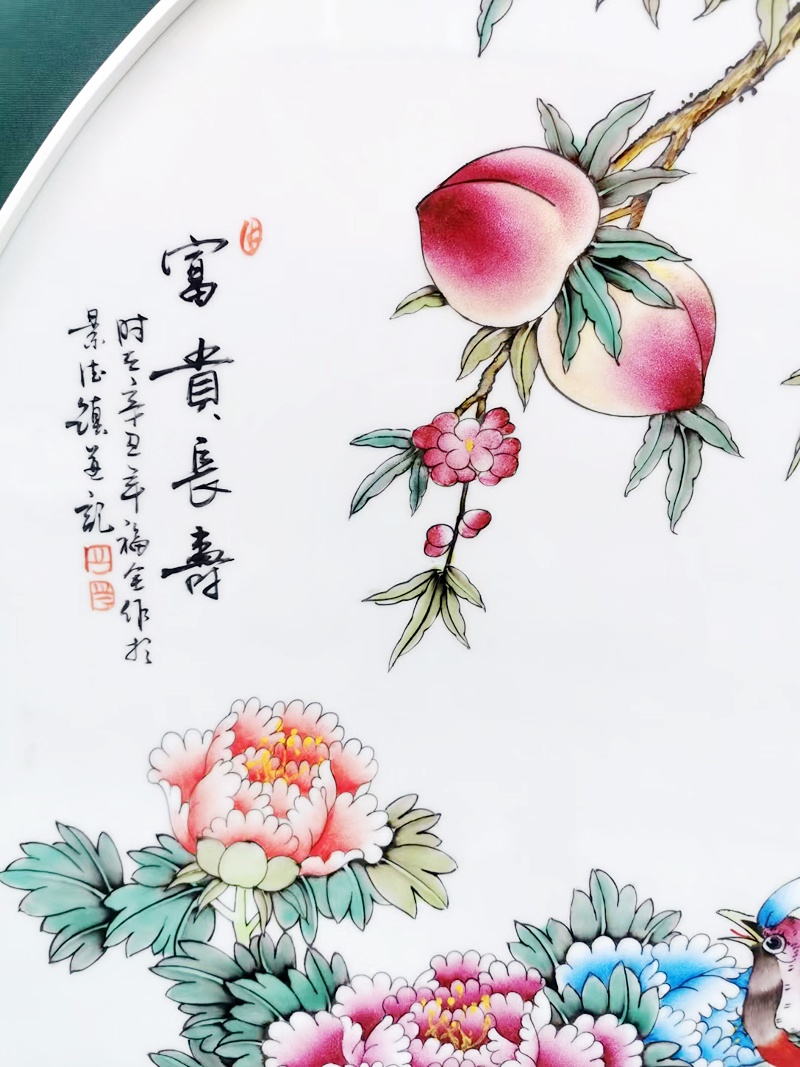 富貴長壽
时在辛丑年福全作於
景德鎮並記